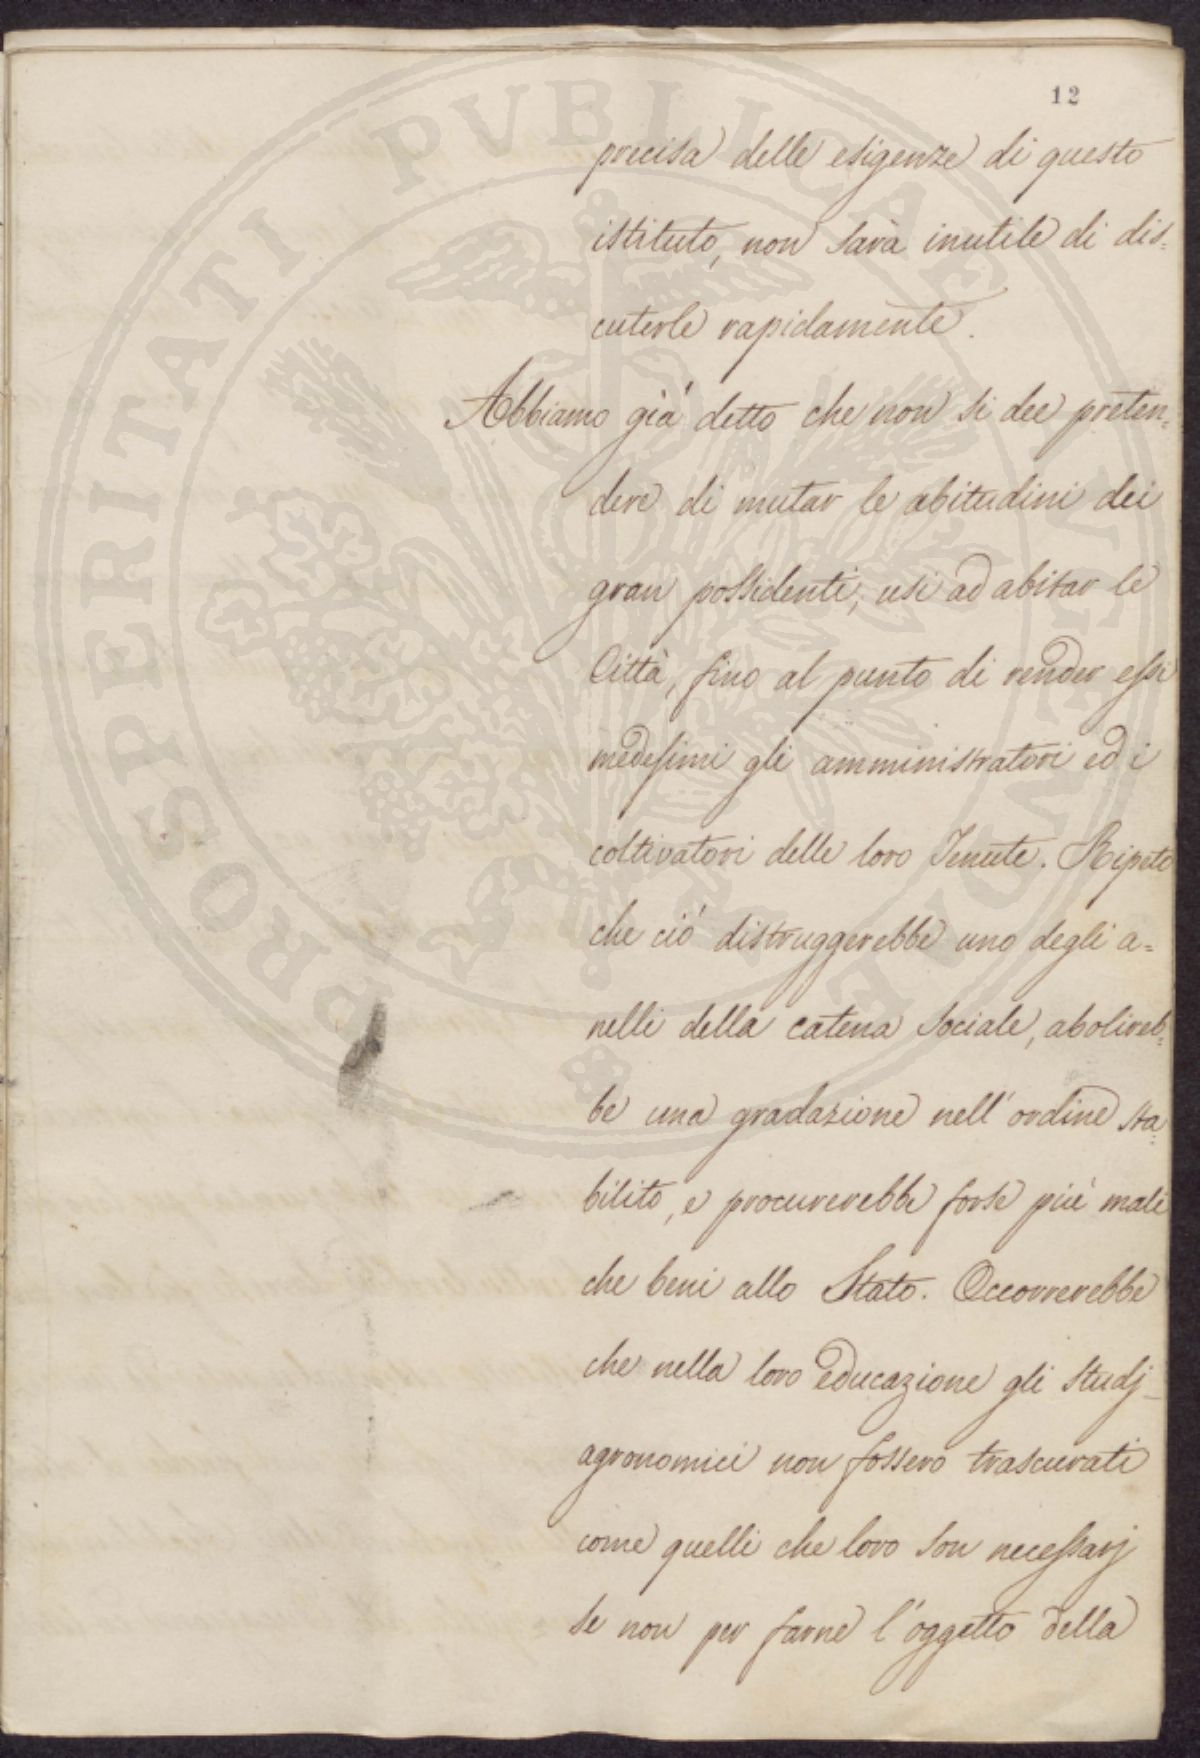 12
precisa delle esigenze di questo
istituto, non sarà inutile di dis=
cuterle rapidamente.
Abbiamo già detto che non si dee preten=
dere di mutar le abitudini dei
gran possidenti, usi ad abitar le
Città, fino al punto di render essi
medesimi gli amministratori ed i
coltivatori delle loro Tenute. Ripeto
che ciò distruggerebbe uno degli a=
nelli della catena sociale, abolireb=
be una gradazione nell'ordine sta=
bilito, e procurerebbe forse più mali
che beni allo Stato. Occorrerebbe
che nella loro educazione gli studj
agronomici non fossero trascurati
come quelli che loro son necessarj
se non per farne l'oggetto della
PROSPERITATI PVBLICAE AVGENDAE